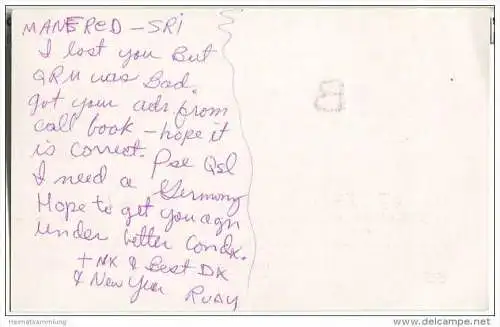 MANFRED - SRI
I lost you But
QRM was Bad.
got your adr. from
call book - hope it
is correct. Pse Qsl
I need a Germany
Hope to get you agn
under better Condx.
+ NK & Best DX
& New Year RUDY
Heimatkammlung
www.delcampe.net